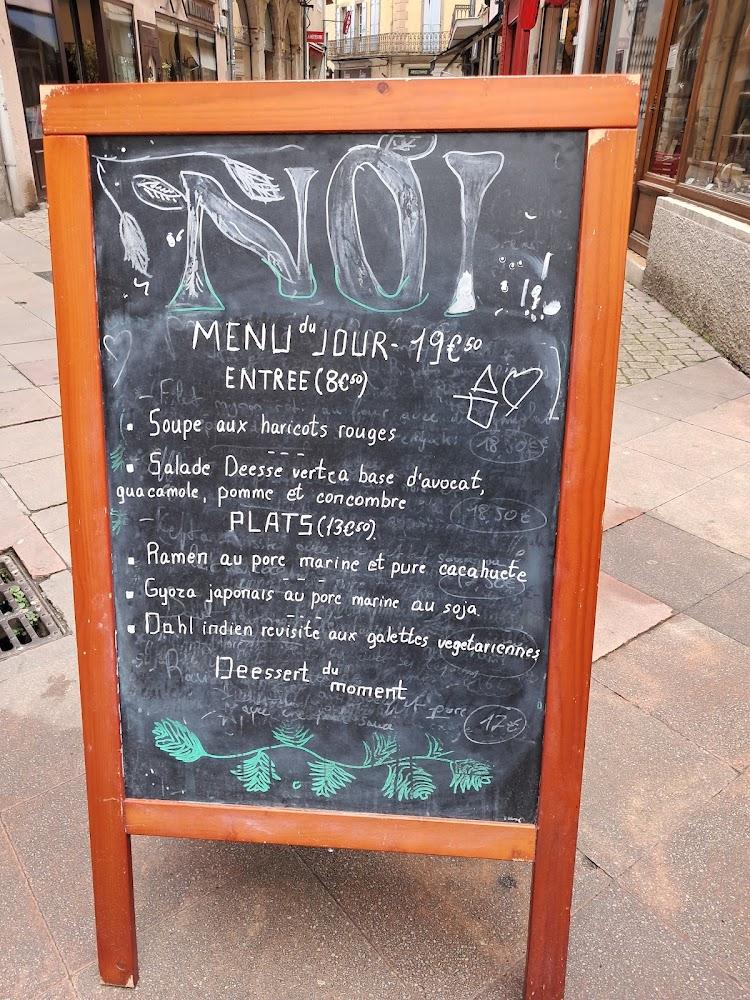 NOÏ
MENU du JOUR - 19€50
ENTREE (8€50)
▪ Soupe aux haricots rouges
---
▪ Salade Deesse verte a base d'avocat,
guacamole, pomme et concombre
PLATS (13€50)
▪ Ramen au porc marine et pure cacahuete
---
▪ Gyoza japonais au porc marine au soja
---
▪ Dahl indien revisite aux galettes vegetariennes
Deessert du
moment
18 50€
18 50€
17€